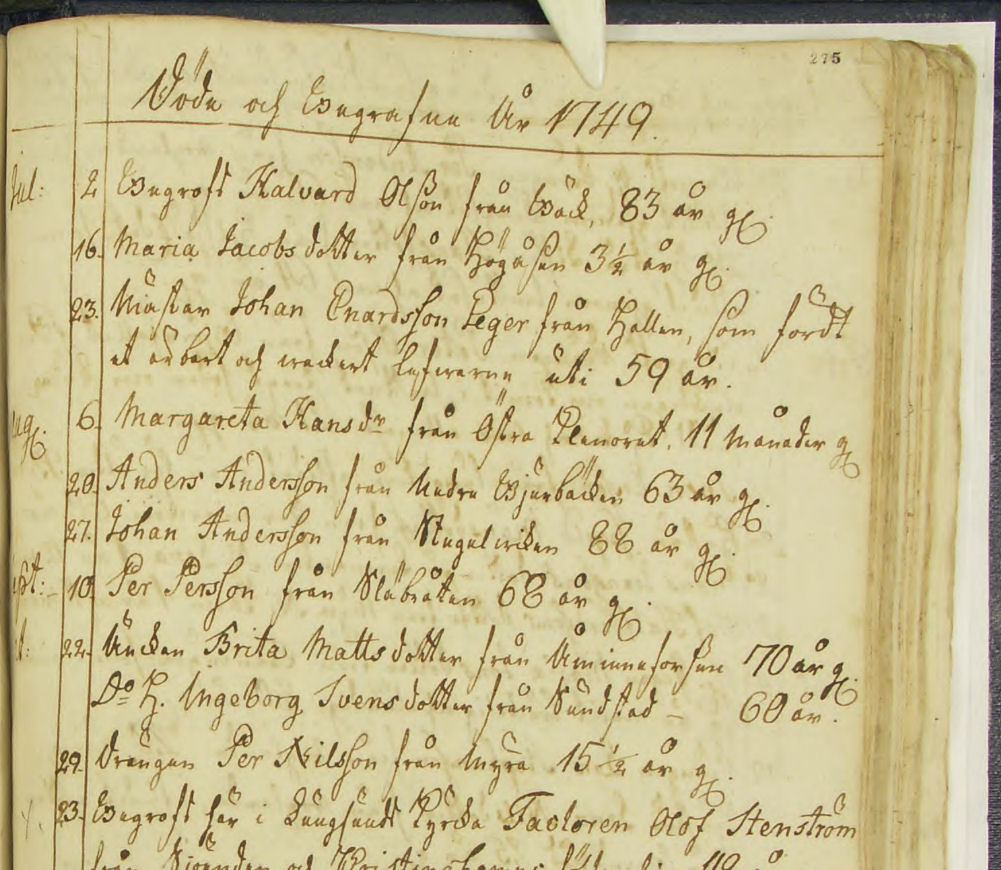 275
Döde och Begrafne År 1749.
Jul: 2 Begrofs Halvard Olsson från Bäck, 83 år gl.
16. Maria Jacobsdotter från Högåsen 3½ år gl.
23. Mäster Johan Enardsson Leger från Hallen, som fördt
et och uti 59 år.
Aug. 6. Margareta Hansdr från Östra 11 månader gl
20. Anders Andersson från Nedre Bjurbäcken 63 år gl.
27. Johan Andersson från 88 år gl.
Sept: 10. Per Persson från Släbråten 68 år gl.
22. Änckan Brita Mattsdotter från Åminneforsen 70 år gl.
Do H. Ingeborg Svensdotter från Sundstad – 60 år.
29. Drängen Per Nilsson från Myra 15½ år gl.
23. Begrofs här i Långsunds Kyrcka Factoren Olof Stenström
från och Christinehamns